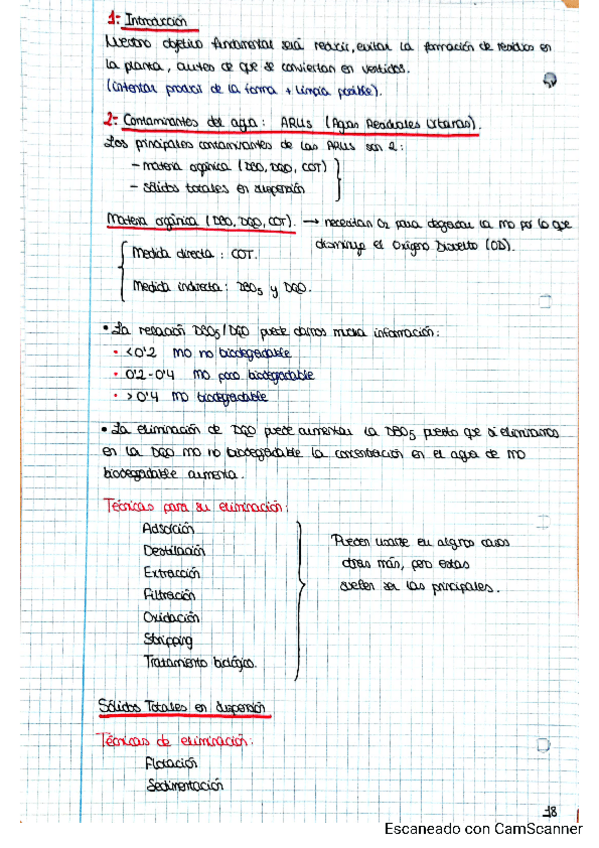 1: Introducción
Nuestro objetivo fundamental será reducir, evitar la formación de residuos en
la planta, antes de que se conviertan en vertidos.
(intentar producir de la forma + limpia posible).
2: Contaminantes del agua: ARUs (Aguas Residuales Urbanas).
Los principales contaminantes de las ARUs son 2:
- materia orgánica (DBO, DQO, COT)
- sólidos totales en suspensión
Materia orgánica (DBO, DQO, COT). → necesitan O2 para degradar la mo por lo que
disminuye el Oxígeno Disuelto (OD).
Medida directa: COT.
Medida indirecta: DBO5 y DQO.
• La relación DBO5/DQO puede darnos mucha información:
• <0'2 MO no biodegradable
• 0'2-0'4 MO poco biodegradable
• >0'4 MO biodegradable
• La eliminación de DQO puede aumentar la DBO5 puesto que si eliminamos
en la DQO mo no biodegradable la concentración en el agua de MO
biodegradable aumenta.
Técnicas para su eliminación:
Adsorción
Destilación
Extracción
Filtración
Oxidación
Stripping
Tratamiento biológico.
Pueden usarse en algunos casos
otras más, pero estas
suelen ser las principales.
Sólidos Totales en suspensión
Técnicas de eliminación:
Flotación
Sedimentación
18
Escaneado con CamScanner